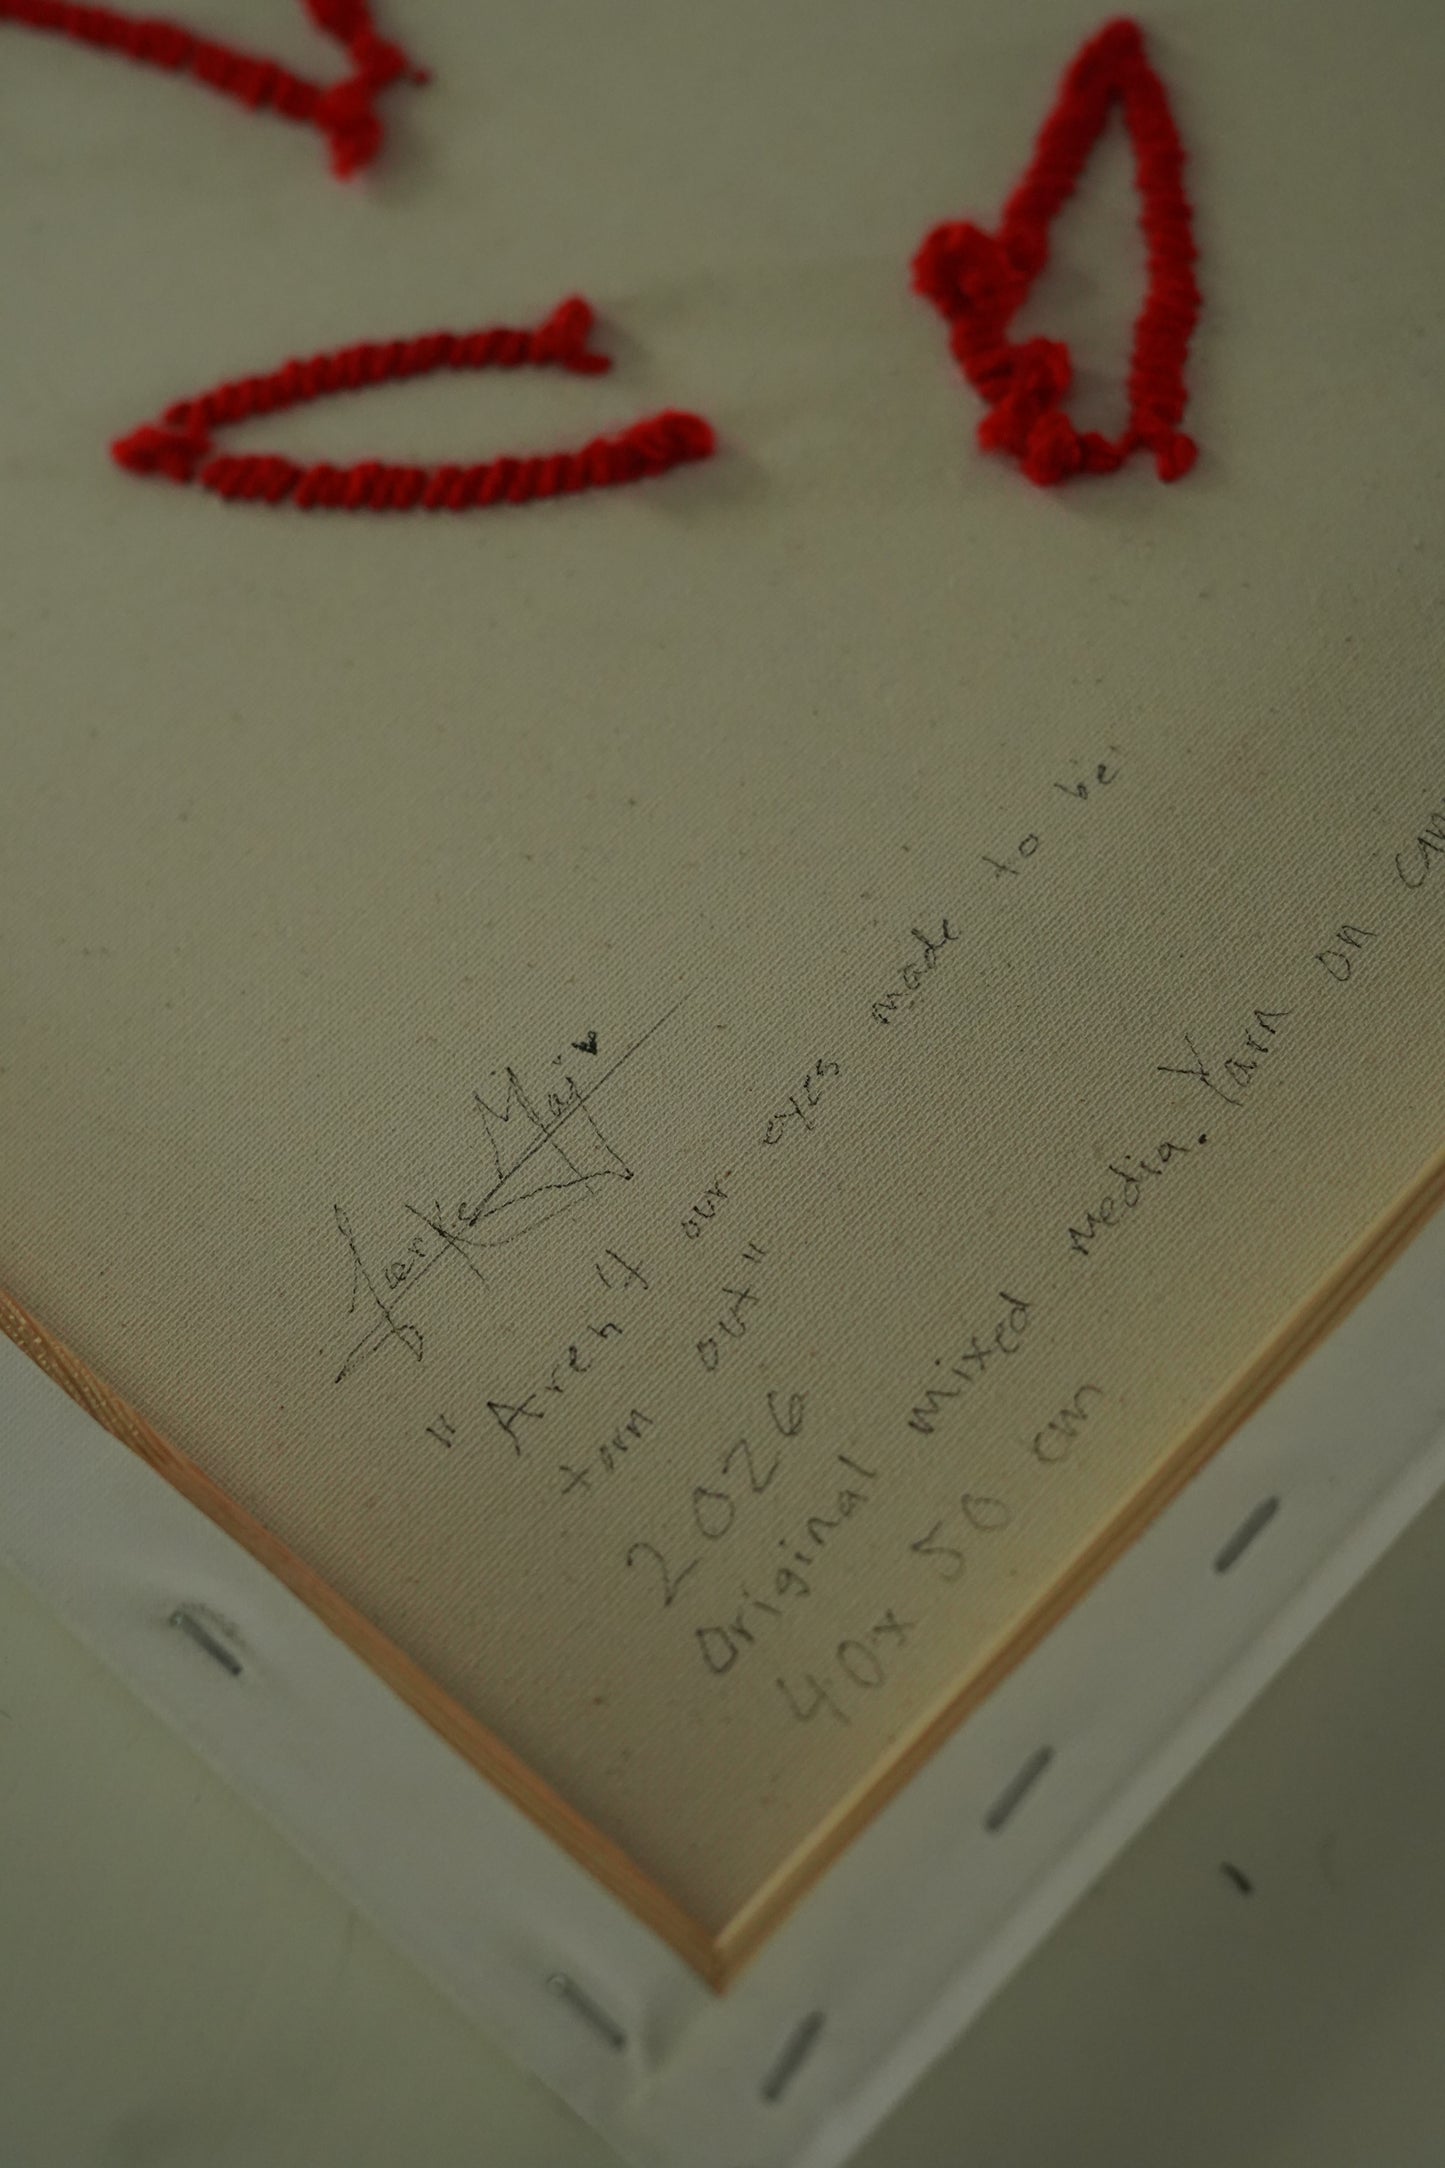 "Aren't our eyes made to be
torn out"
2026
Original mixed media. Yarn on can
40x50 cm